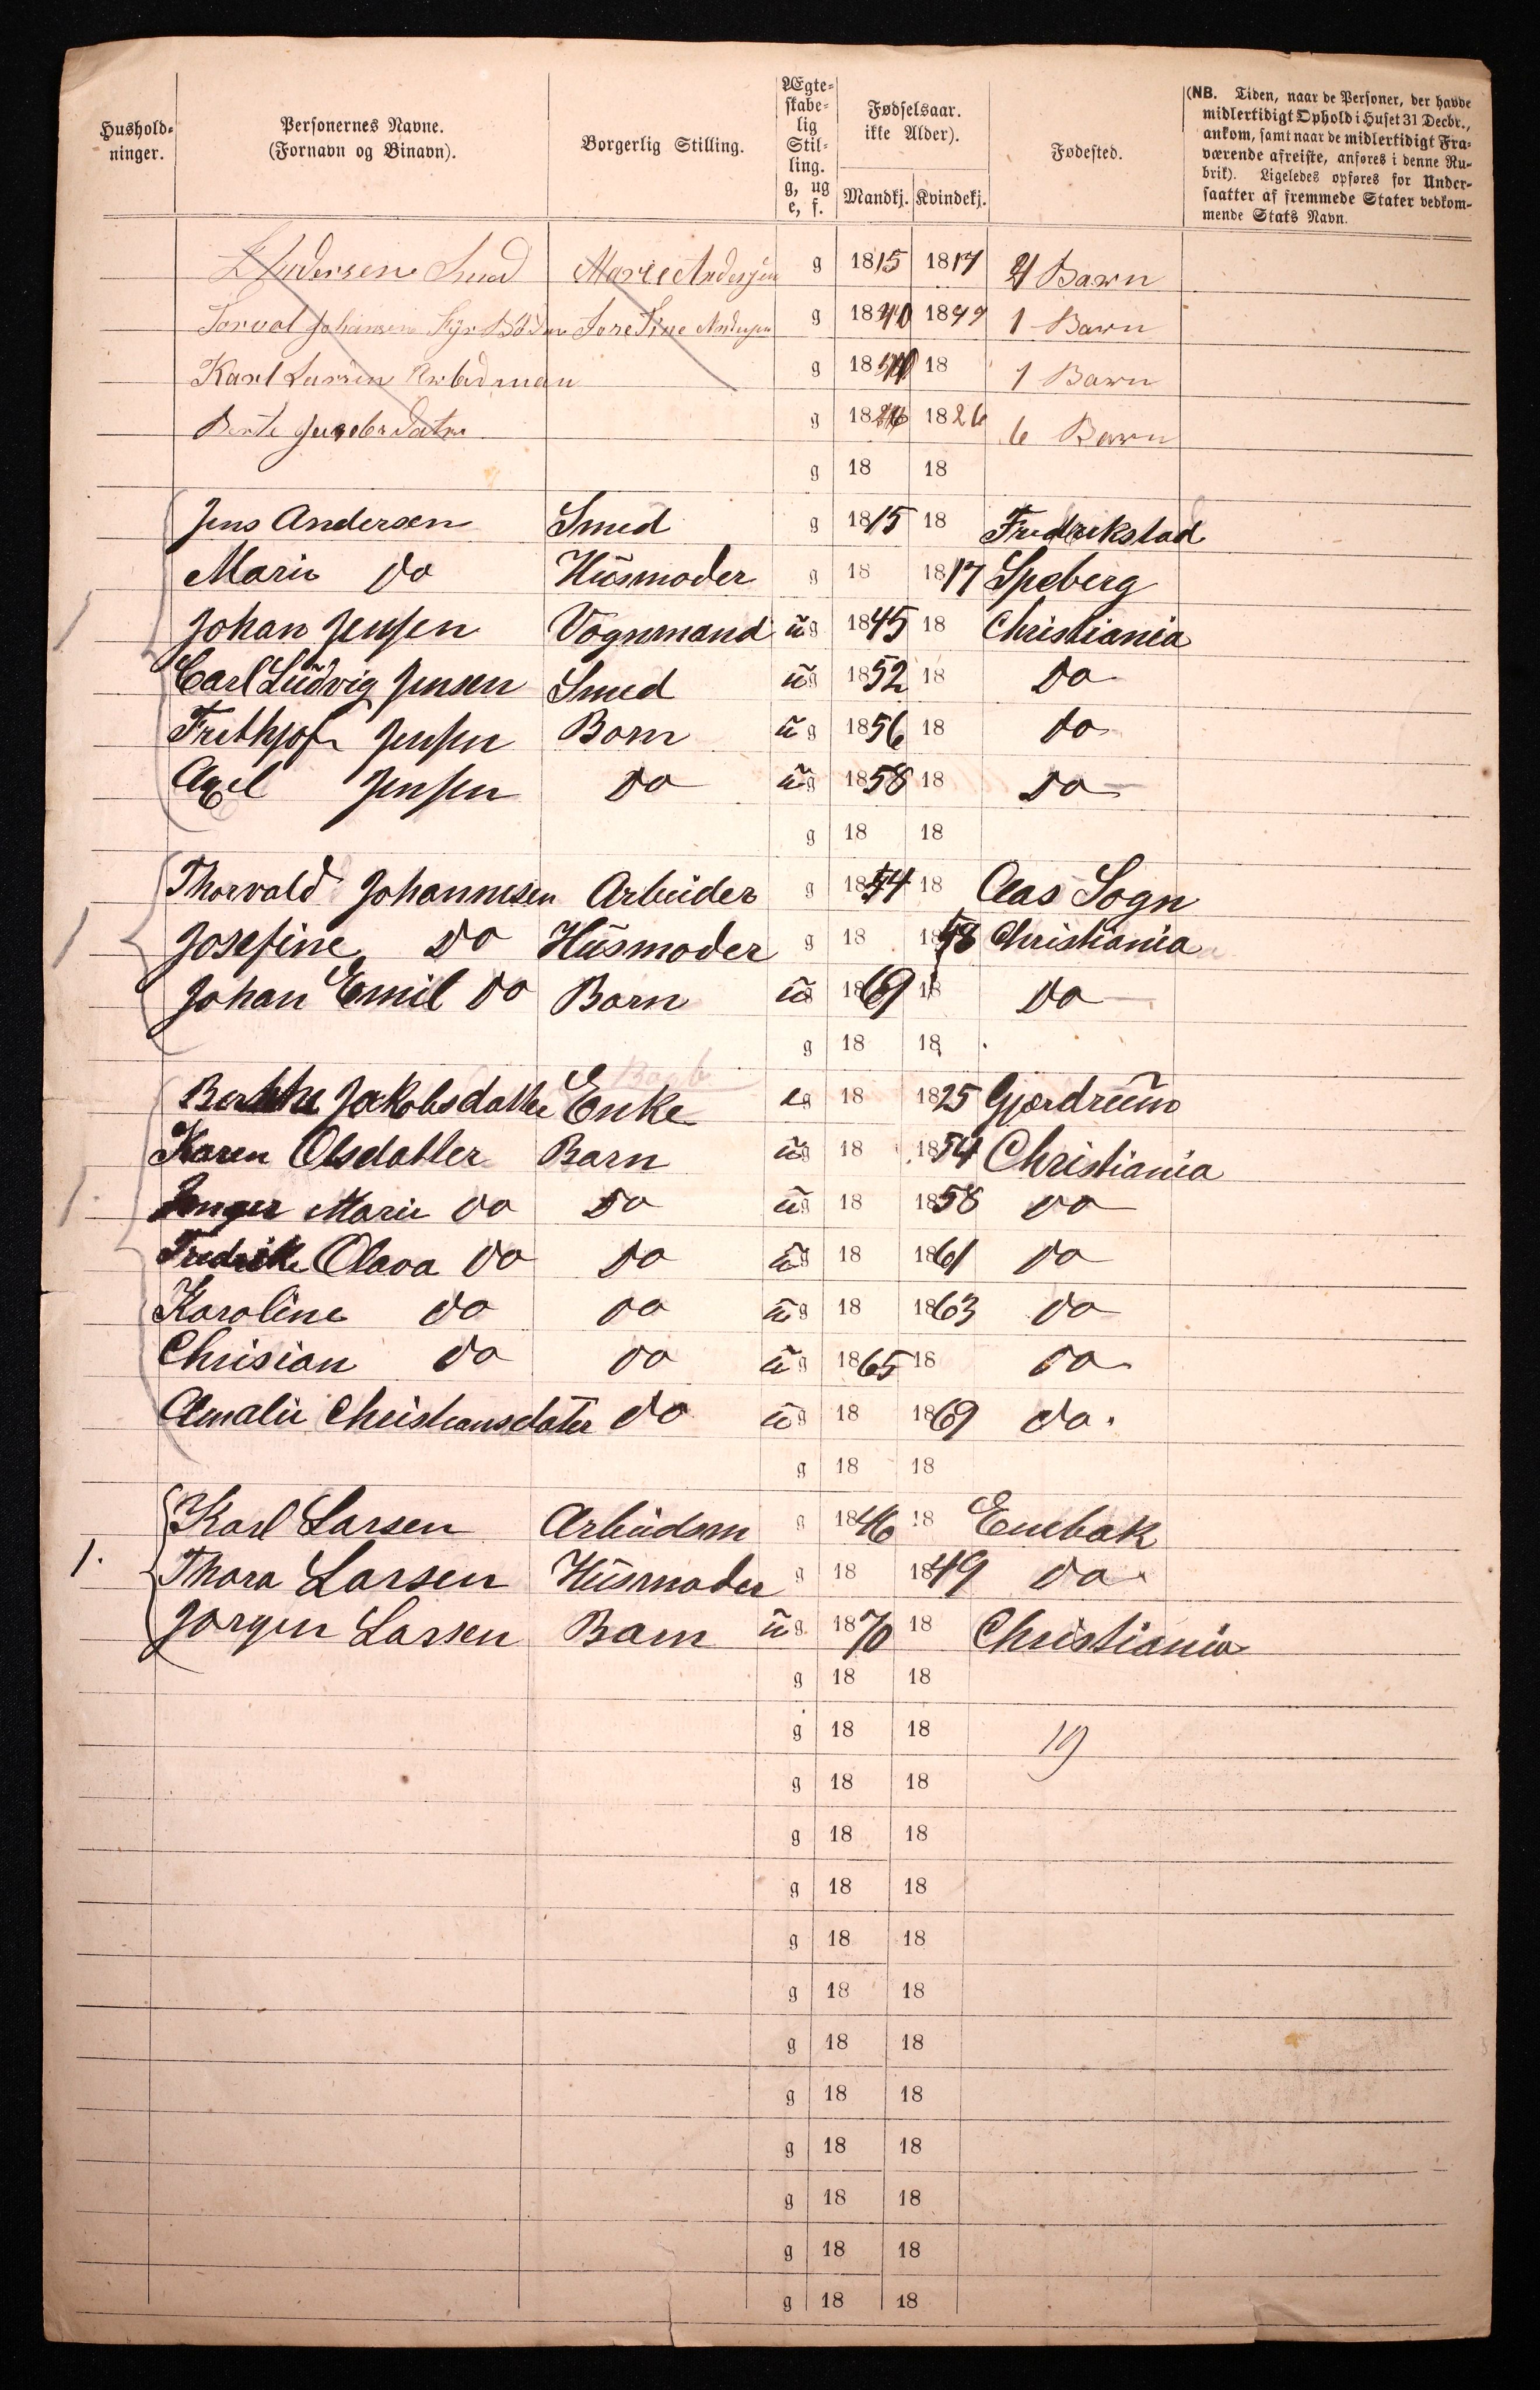 Hushold-
ninger.
Personernes Navne.
(Fornavn og Binavn).
Borgerlig Stilling.
Ægte-
skabe-
lig
Stil-
ling.
g, ug
e, f.
Fødselsaar.
ikke Alder).
Mandkj. Kvindekj.
Fødested.
(NB. Tiden, naar de Personer, der havde
midlertidigt Ophold i Huset 31 Decbr.,
ankom, samt naar de midlertidigt Fra-
værende afreiste, anføres i denne Ru-
brik). Ligeledes opføres for Under-
saatter af fremmede Stater vedkom-
mende Stats Navn.
Andersen Smed Marie Andersen g 1815 1817 4 Barn
Torval Johansen g 1840 1849 1 Barn
Karl Larsen Arbedman g 18 18 1 Barn
Berte g 18 1826 6 Barn
g 18 18
Jens Andersen Smed g 1815 18 Fredrikstad
Marie do Husmoder g 18 1817 Speberg
1 Johan Jensen Vognmand ug 1845 18 Christiania
Carl Ludvig Jensen Smed ug 1852 18 do
Frithjof Jensen Barn ug 1856 18 do
Axel Jensen do ug 1858 18 do
g 18 18
Thorvald Johannesen Arbeider g 1844 18 Aas Sogn
1 Josefine do Husmoder g 18 1848 Christiania
Johan Emil do Barn ug 1869 18 do
g 18 18
Berthe Jakobsdatter Enke eg 18 1825 Gjerdrum
Karen Olsdatter Barn ug 18 1854 Christiania
1. Inger Marie do do ug 18 1858 do
Fredrike Olava do do ug 18 1861 do
Karoline do do ug 18 1863 do
Chrisian do do ug 1865 18 do
Amalie Christiansdater do ug 18 1869 do.
g 18 18
Karl Larsen Arbeidsm g 1846 18 Enebak
1. Thora Larsen Husmoder g 18 1849 do
Jørgen Larsen Barn ug 1870 18 Christiania
g 18 18
g 18 18 19
g 18 18
g 18 18
g 18 18
g 18 18
g 18 18
g 18 18
g 18 18
g 18 18
g 18 18
g 18 18
g 18 18